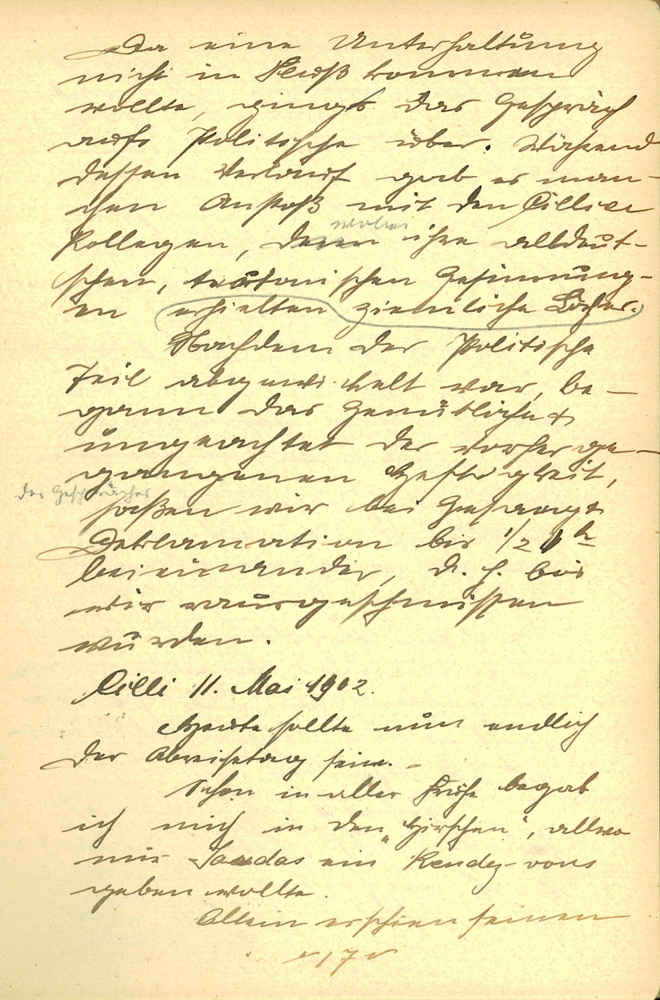 Da eine Unterhaltung
nicht in Fluß kommen
wollte, ging's das Gespräch
aufs Politische über. Während
dessen Verlauf gab es man-
chen Anstoß mit den Cillier
wobei
Kollegen, deren ihre alldeut-
schen, teutonischen Gesinnung-
en erhielten ziemliche Löcher.
Nachdem der Politische
Teil abgewickelt war, be-
gann das Gemütliche &
ungeachtet der vorherge-
gangenen Heftigkeit,
des Gespräches
saßen wir bei Gesang &
Deklamation bis 1/2 1h
beieinander, d. h. bis
wir rausgeschmissen
wurden.
Cilli 11. Mai 1902.
Heute sollte nun endlich
der Abreisetag sein. –
Schon in aller Frühe begab
ich mich in den „Hirschen“, allwo
mir Sandas ein Rendez-vous
geben wollte.
Allein erschien seinen
~ 17 ~